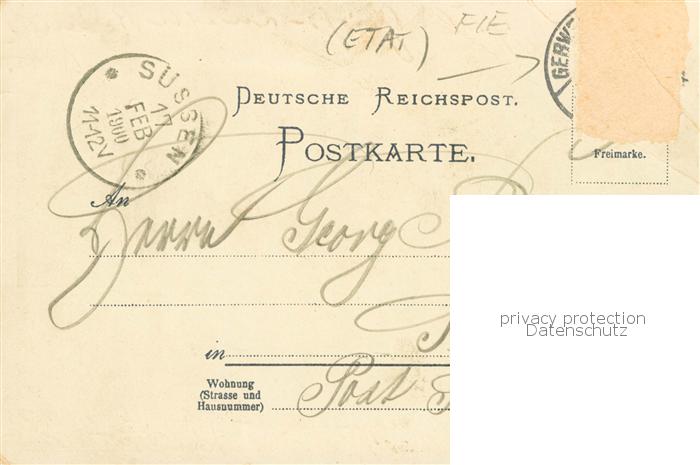 (ETAT) FIE
GERW
SÜSSEN
17
FEB
1900
11-12V
DEUTSCHE REICHSPOST.
POSTKARTE.
Freimarke.
An
Herrn Georg
in
Wohnung
(Strasse und
Hausnummer)
Post
privacy protection
Datenschutz